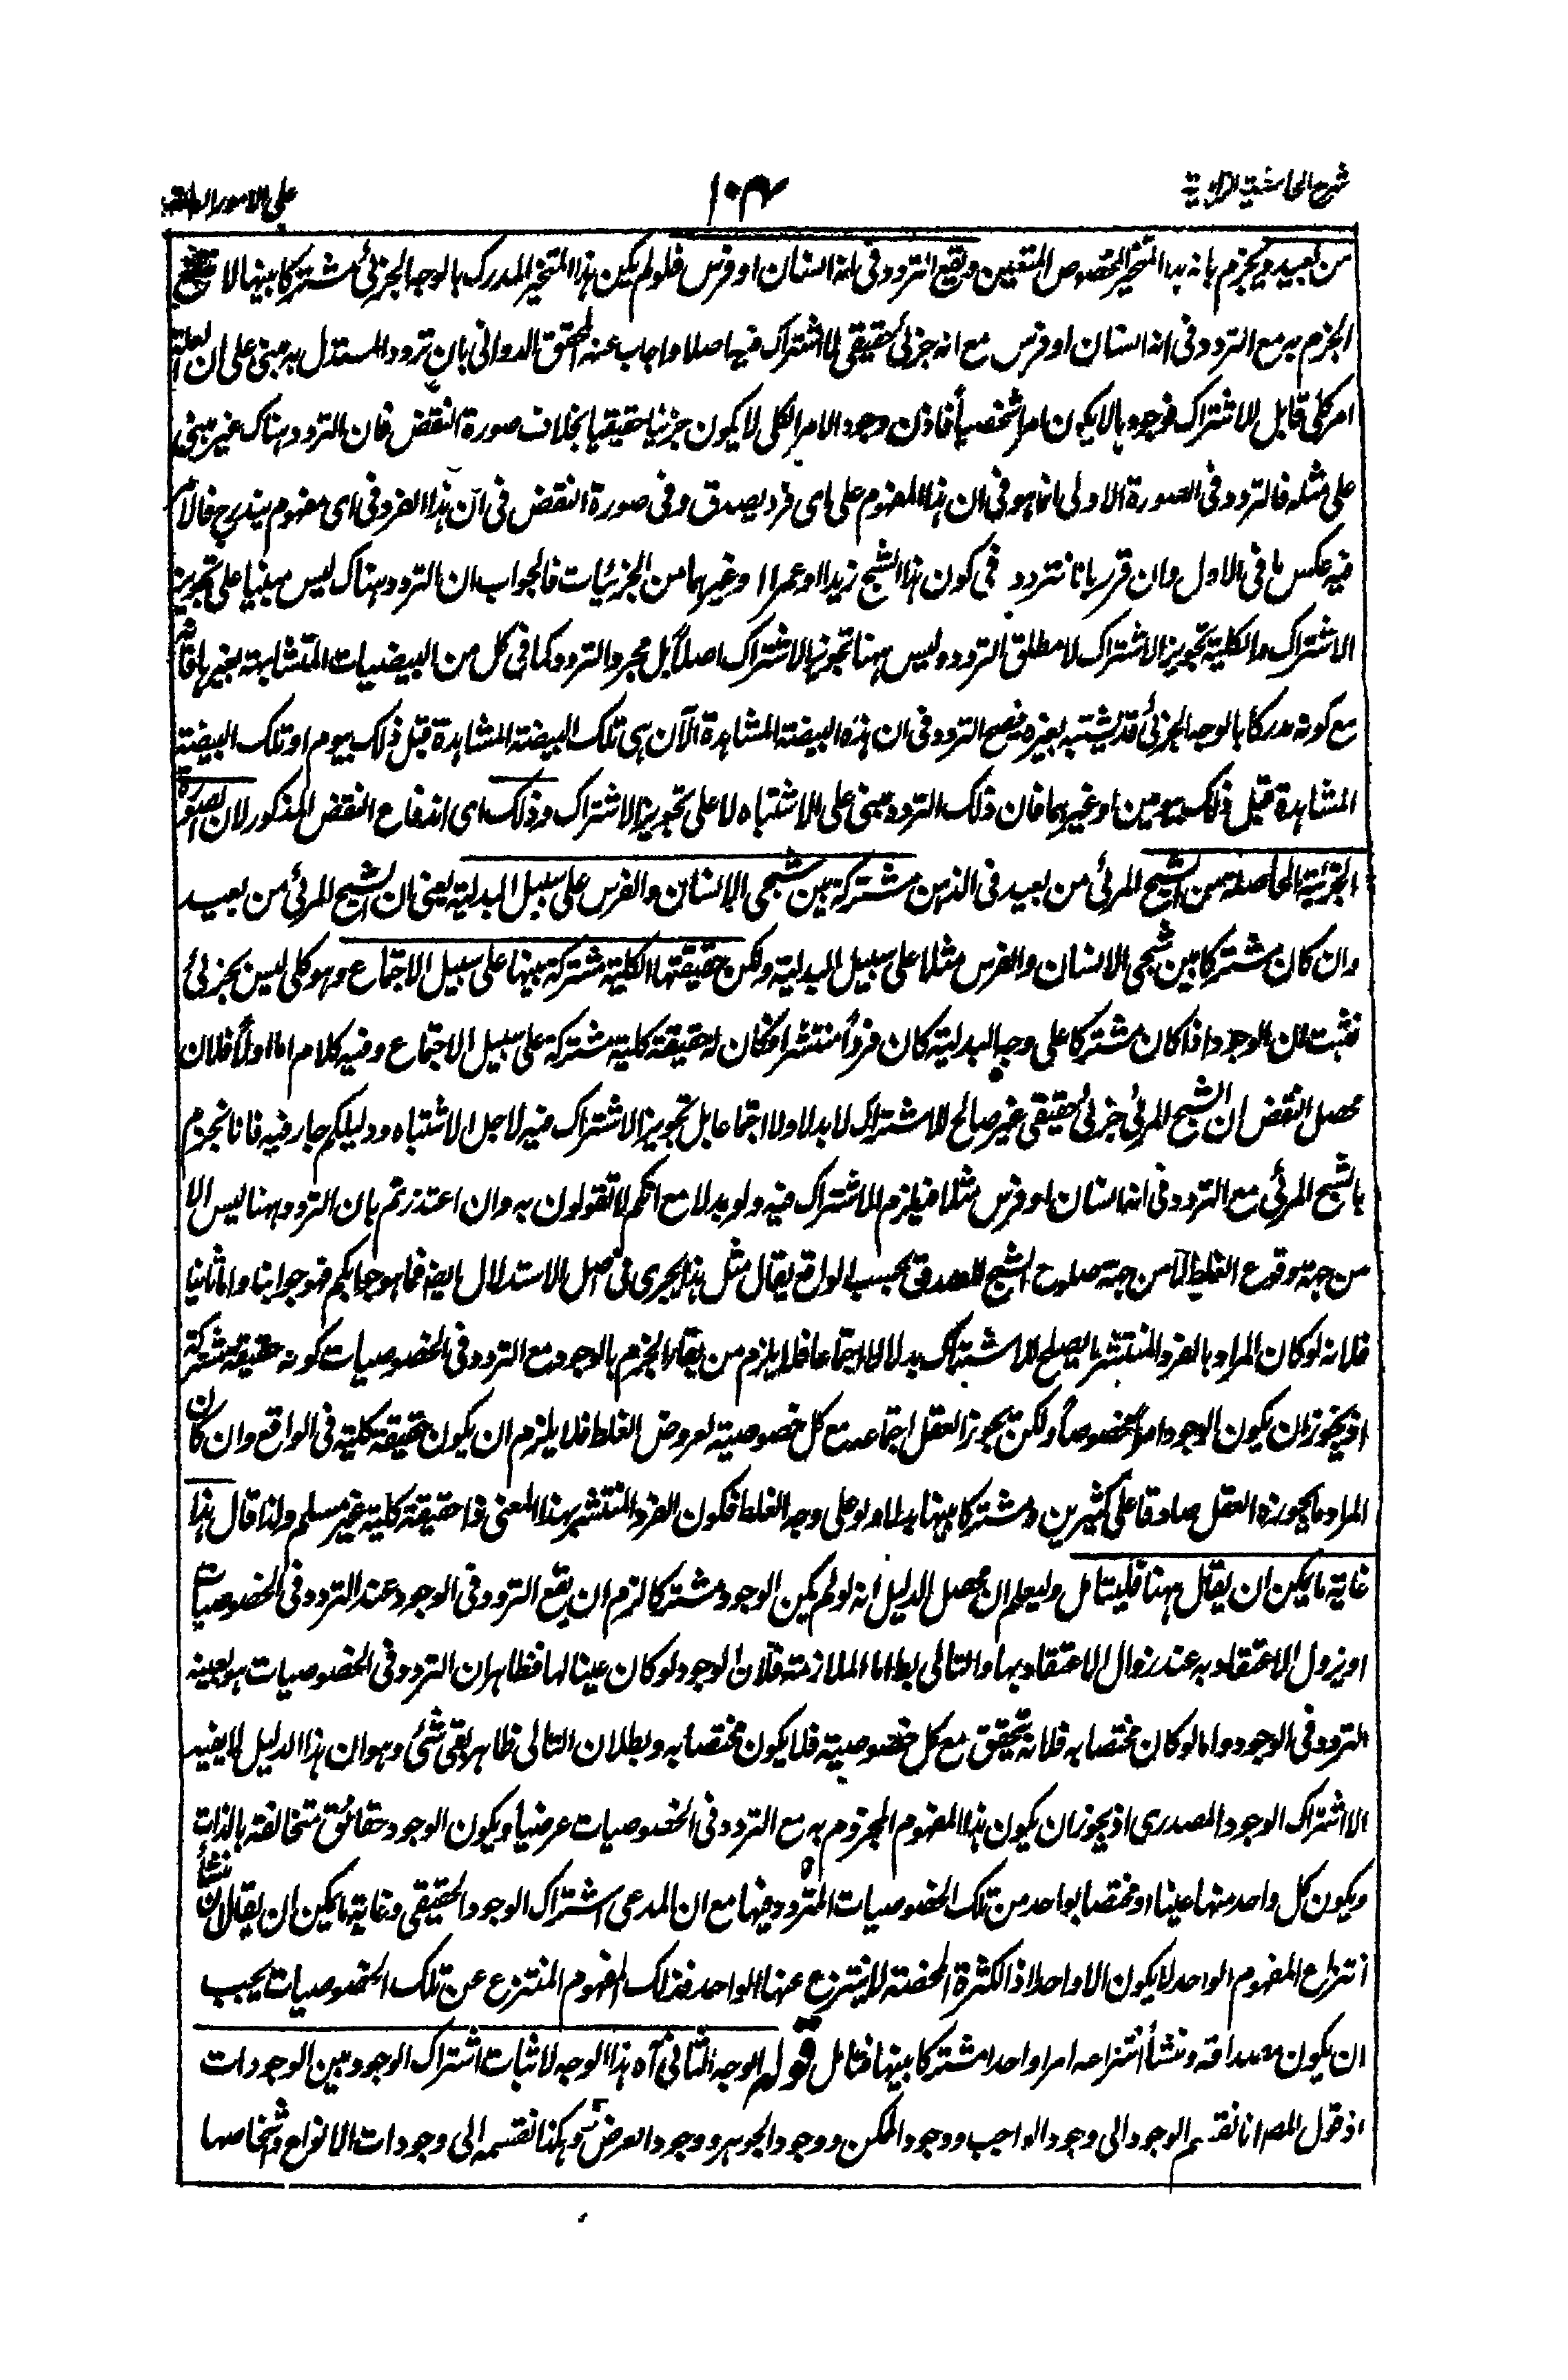 شرح الحاشیۃ الزاہدیۃ
۱۰۴
علی الامور العامۃ
من بعید ویجزم بانہ ہذا المتحیز المخصوص المتعین ویقع التردد فی انہ انسان او فرس فلو لم یکن ہذا المتحیز المدرک بالوجہ الجزئی مشترکا بینہا لا یصح
الجزم بہ مع التردد فی انہ انسان او فرس مع انہ جزئی حقیقی لا اشتراک فیہ اصلا واجاب عنہ المحقق الدوانی بان تردد المستدل بہ مبنی علی ان العلۃ
امر کلی قابل للاشتراک فوجودہا لا یکون امرا شخصیا فاذن وجود الامر الکلی لا یکون جزئیا حقیقیا بخلاف صورۃ النقض فان التردد ہناک غیر مبنی
علی مثلہ فالتردد فی الصورۃ الاولی انما ہو فی ان ہذا المفہوم علی ای فرد یصدق وفی صورۃ النقض فی ان ہذا الفرد فی ای مفہوم یندرج فالامر
فیہ عکس ما فی الاول وان قرر بانا نتردد فی کون ہذا الشبح زیدا او عمرا او غیرہما من الجزئیات فالجواب ان التردد ہناک لیس مبنیا علی تجویز
الاشتراک والکلیۃ تجویز الاشتراک لا مطلق التردد ولیس ہہنا تجویز الاشتراک اصلا بل مجرد التردد کما فی کل من البیضیات المتشابہۃ بغیرہا فانہ
مع کونہ مدرکا بالوجہ الجزئی قد یشتبہ بغیرہ فیصح التردد فی ان ہذہ البیضۃ المشاہدۃ الآن ہی تلک البیضۃ المشاہدۃ قبل ذلک بیوم او تلک البیضۃ
المشاہدۃ قبل ذلک بیومین او غیرہما فان ذلک التردد مبنی علی الاشتباہ لا علی تجویز الاشتراک وذلک ای اندفاع النقض المذکور لان الصورۃ
الجزئیۃ الحاصلۃ من الشبح المرئی من بعید فی الذہن مشترکۃ بین شبحی الانسان والفرس علی سبیل البدلیۃ یعنی ان الشبح المرئی من بعید
وان کان مشترکا بین شبحی الانسان والفرس مثلا علی سبیل البدلیۃ ولکن حقیقتہا الکلیۃ مشترکۃ بینہا علی سبیل الاجتماع وہو کلی لیس بجزئی
فثبت ان الوجود اذا کان مشترکا علی وجہ البدلیۃ کان فردا منتشرا فکان لہ حقیقۃ کلیۃ مشترکۃ علی سبیل الاجتماع وفیہ کلام اما اولا فلان
محصل النقض ان الشبح المرئی جزئی حقیقی غیر صالح للاشتراک لا بدلا ولا اجتماعا بل تجویز الاشتراک فیہ لاجل الاشتباہ ودلیلکم جار فیہ فانا نجزم
بالشبح المرئی مع التردد فی انہ انسان او فرس مثلا فیلزم الاشتراک فیہ ولو بدلا مع انکم لا تقولون بہ وان اعتذرتم بان التردد ہہنا لیس الا
من جہۃ وقوع الغلط لا من جہۃ صلوح الشبح للصدق بحسب الواقع یقال مثل ہذا یجری فی اصل الاستدلال ایضا فما ہو جوابکم فہو جوابنا واما ثانیا
فلانہ لو کان المراد بالفرد المنتشر ما یصلح للاشتراک بدلا لا اجتماعا فلا یلزم من بقاء الجزم بالوجود مع التردد فی الخصوصیات کونہ حقیقۃ مشترکۃ
اذ یجوز ان یکون الوجود امرا مخصوصا ولکن یجوز العقل اجتماعہ مع کل خصوصیۃ لعروض الغلط فلا یلزم ان یکون حقیقۃ کلیۃ فی الواقع وان کان
المراد ما یجوزہ العقل صادقا علی کثیرین ومشترکا بینہا بدلا ولو علی وجہ الغلط فکون الفرد المنتشر بہذا المعنی ذا حقیقۃ کلیۃ غیر مسلم ولذا قال ہذا
غایۃ ما یمکن ان یقال ہہنا فلیتامل ولیعلم ان محصل الدلیل انہ لو لم یکن الوجود مشترکا لزم ان یقع التردد فی الوجود عند التردد فی الخصوصیات
او یزول الاعتقاد بہ عند زوال الاعتقاد بہا والتالی بط اما الملازمۃ فلان الوجود لو کان عینا لہا فظاہر ان التردد فی الخصوصیات ہو بعینہ
التردد فی الوجود واما لو کان مختصا بہ فلانہ یتحقق مع کل خصوصیۃ فلا یکون مختصا بہ وبطلان التالی ظاہر بقی شئ وہو ان ہذا الدلیل لا یفید
الا اشتراک الوجود المصدری اذ یجوز ان یکون ہذا المفہوم المجزوم بہ مع التردد فی الخصوصیات عرضیا ویکون الوجود حقائق متخالفۃ بالذات
ویکون کل واحد منہا عینا او مختصا بواحد من تلک الخصوصیات المتردد فیہا مع ان المدعی اشتراک الوجود الحقیقی وغایۃ ما یمکن ان یقال ان منشأ
انتزاع المفہوم الواحد لا یکون الا واحدا اذ الکثرۃ المحضۃ لا ینتزع عنہا الواحد فذلک المفہوم المنتزع عن تلک الخصوصیات یجب
ان یکون مصداقہ ومنشأ انتزاعہ امرا واحدا مشترکا بینہا فتامل قولہ الوجہ الثانی آہ ہذا الوجہ لاثبات اشتراک الوجود بین الوجودات
اذ قول المص انا نقسم الوجود الی وجود الواجب ووجود الممکن ووجود الجوہر ووجود العرض وہکذا نقسمہ الی وجودات الانواع واشخاصہا